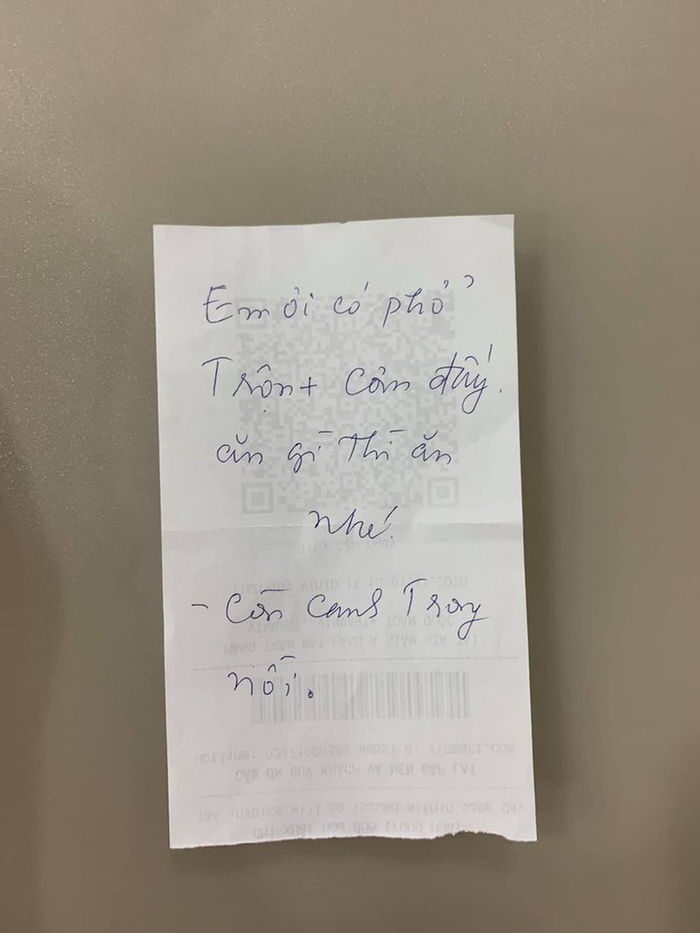 Em ơi có phở
Trộn + Cơm đấy.
ăn gì thì ăn
nhé!
- Còn canh Trong
nồi.